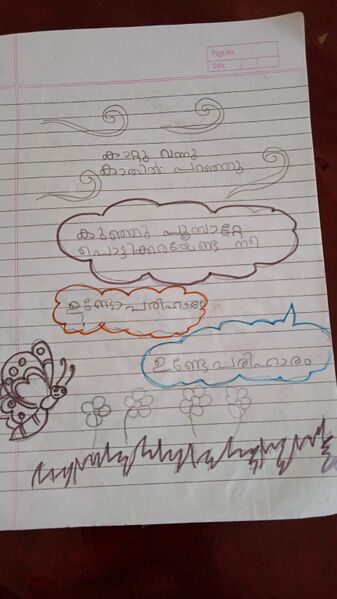 Page No.
Date: / /
കാറ്റു വന്നു
കാതിൽ പറഞ്ഞു
കുഞ്ഞു പൂമ്പാറ്റേ
പൊട്ടിക്കരയേണ്ട നീ
ഉണ്ടോ പരിഹാരം
ഉണ്ടേ പരിഹാരം